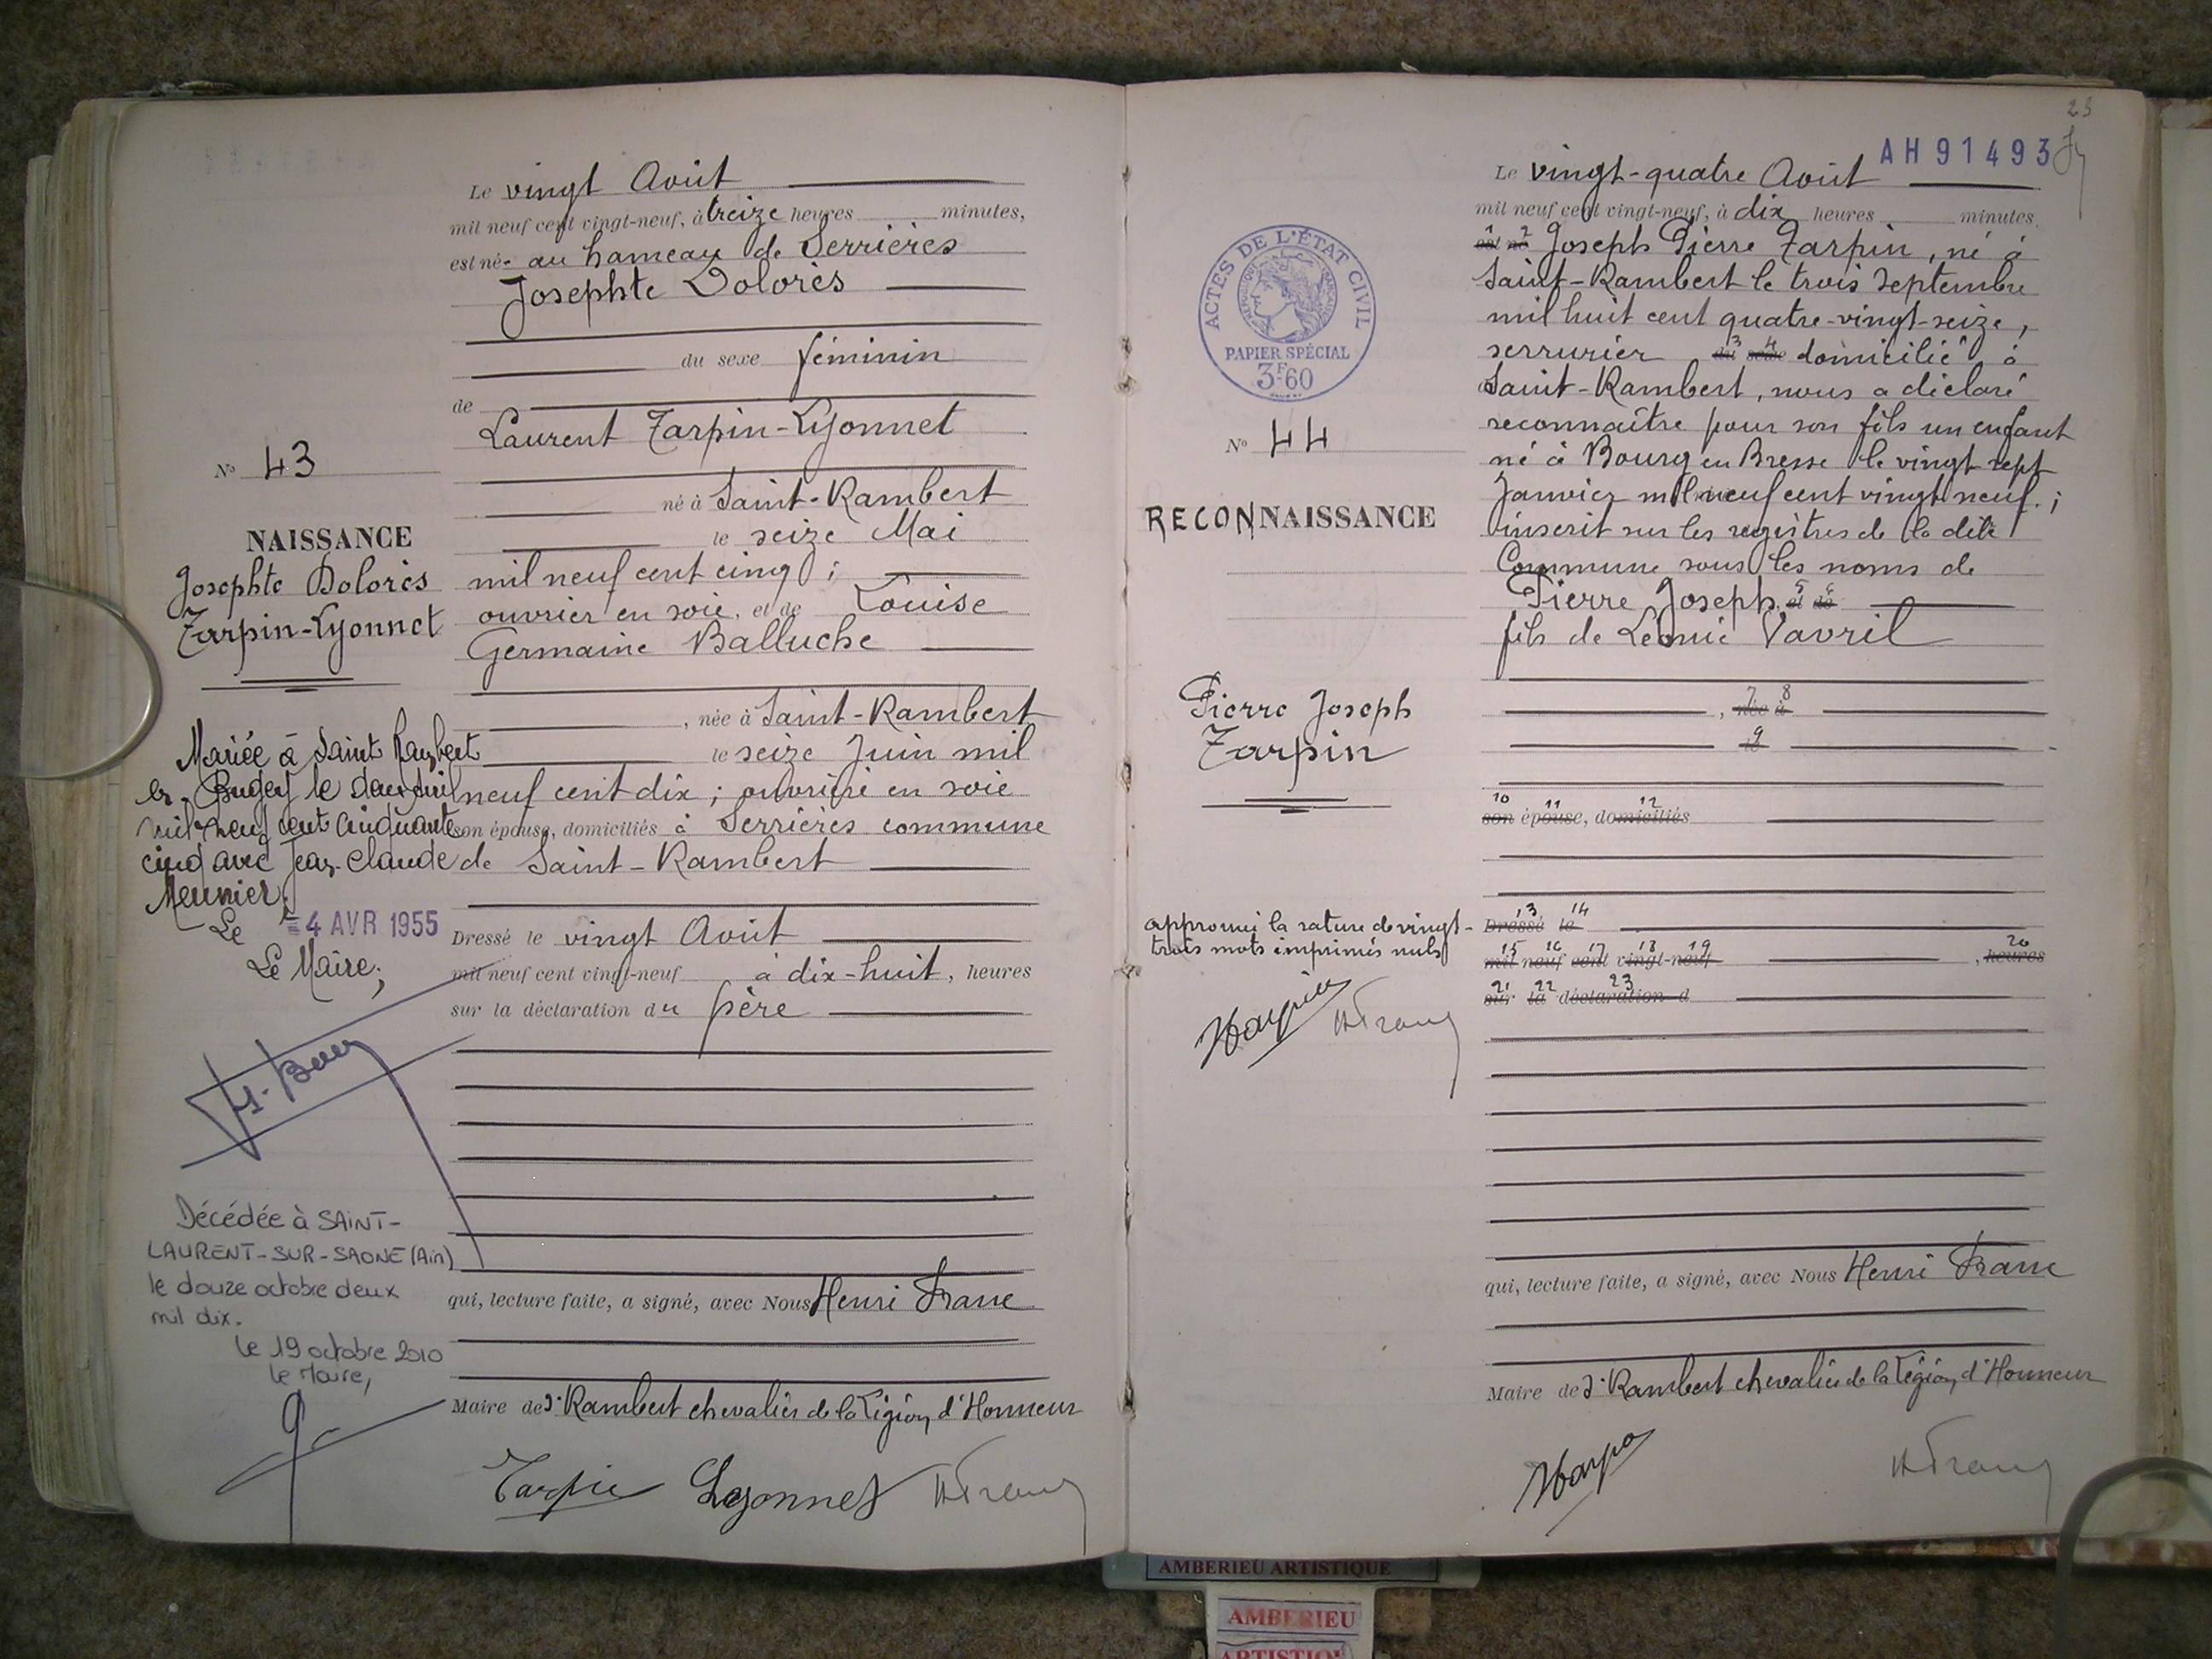 N° 43
NAISSANCE
Josephte Dolorès
Tarpin-Lyonnet
Mariée à Saint Rambert
en Bugey le deux avril
mil neuf cent cinquante
cinq avec Jean-Claude
Meunier.
Le = 4 AVR 1955
Le Maire;
Décédée à SAINT-
LAURENT-SUR-SAONE (Ain)
le douze octobre deux
mil dix.
le 19 octobre 2010
le Maire,
Le vingt Août
mil neuf cent vingt-neuf, à treize heures minutes,
est né au hameau de Serrières
Josephte Dolorès
du sexe féminin
de
Laurent Tarpin-Lyonnet
né à Saint-Rambert
le seize Mai
mil neuf cent cinq ;
ouvrier en soie, et de Louise
Germaine Balluche
, née à Saint-Rambert
le seize Juin mil
neuf cent dix ; ouvrière en soie
son épouse, domiciliés à Serrières commune
de Saint-Rambert
Dressé le vingt Août
mil neuf cent vingt-neuf à dix-huit, heures
sur la déclaration du père
qui, lecture faite, a signé, avec Nous Henri Franc
Maire de St Rambert chevalier de la Légion d'Honneur
Tarpin Lyonnet HFranc
23
AH91493
ACTES DE L'ÉTAT CIVIL
PAPIER SPÉCIAL
3F60
N° 44
RECONNAISSANCE
Pierre Joseph
Tarpin
approuvé la rature de vingt-
trois mots imprimés nuls
HFranc
Le vingt-quatre Août
mil neuf cent vingt-neuf, à dix heures minutes
1 2
est né Joseph Pierre Tarpin, né à
Saint-Rambert le trois Septembre
mil huit cent quatre-vingt-seize,
3 4
serrurier du sexe domicilié à
Saint-Rambert, nous a déclaré
reconnaître pour son fils un enfant
né à Bourg en Bresse le vingt sept
Janvier mil neuf cent vingt neuf. ;
inscrit sur les registres de la dite
Commune sous les noms de
5 6
Pierre Joseph et de
fils de Léonie Vavril
7 8
, née à
9
le
10 11 12
son épouse, domiciliés
13 14
Dressé le
15 16 17 18 19 20
mil neuf cent vingt-neuf , heures
21 22 23
sur la déclaration d
qui, lecture faite, a signé, avec Nous Henri Franc
Maire de St Rambert chevalier de la Légion d'Honneur
HFranc
AMBERIEU ARTISTIQUE
AMBERIEU